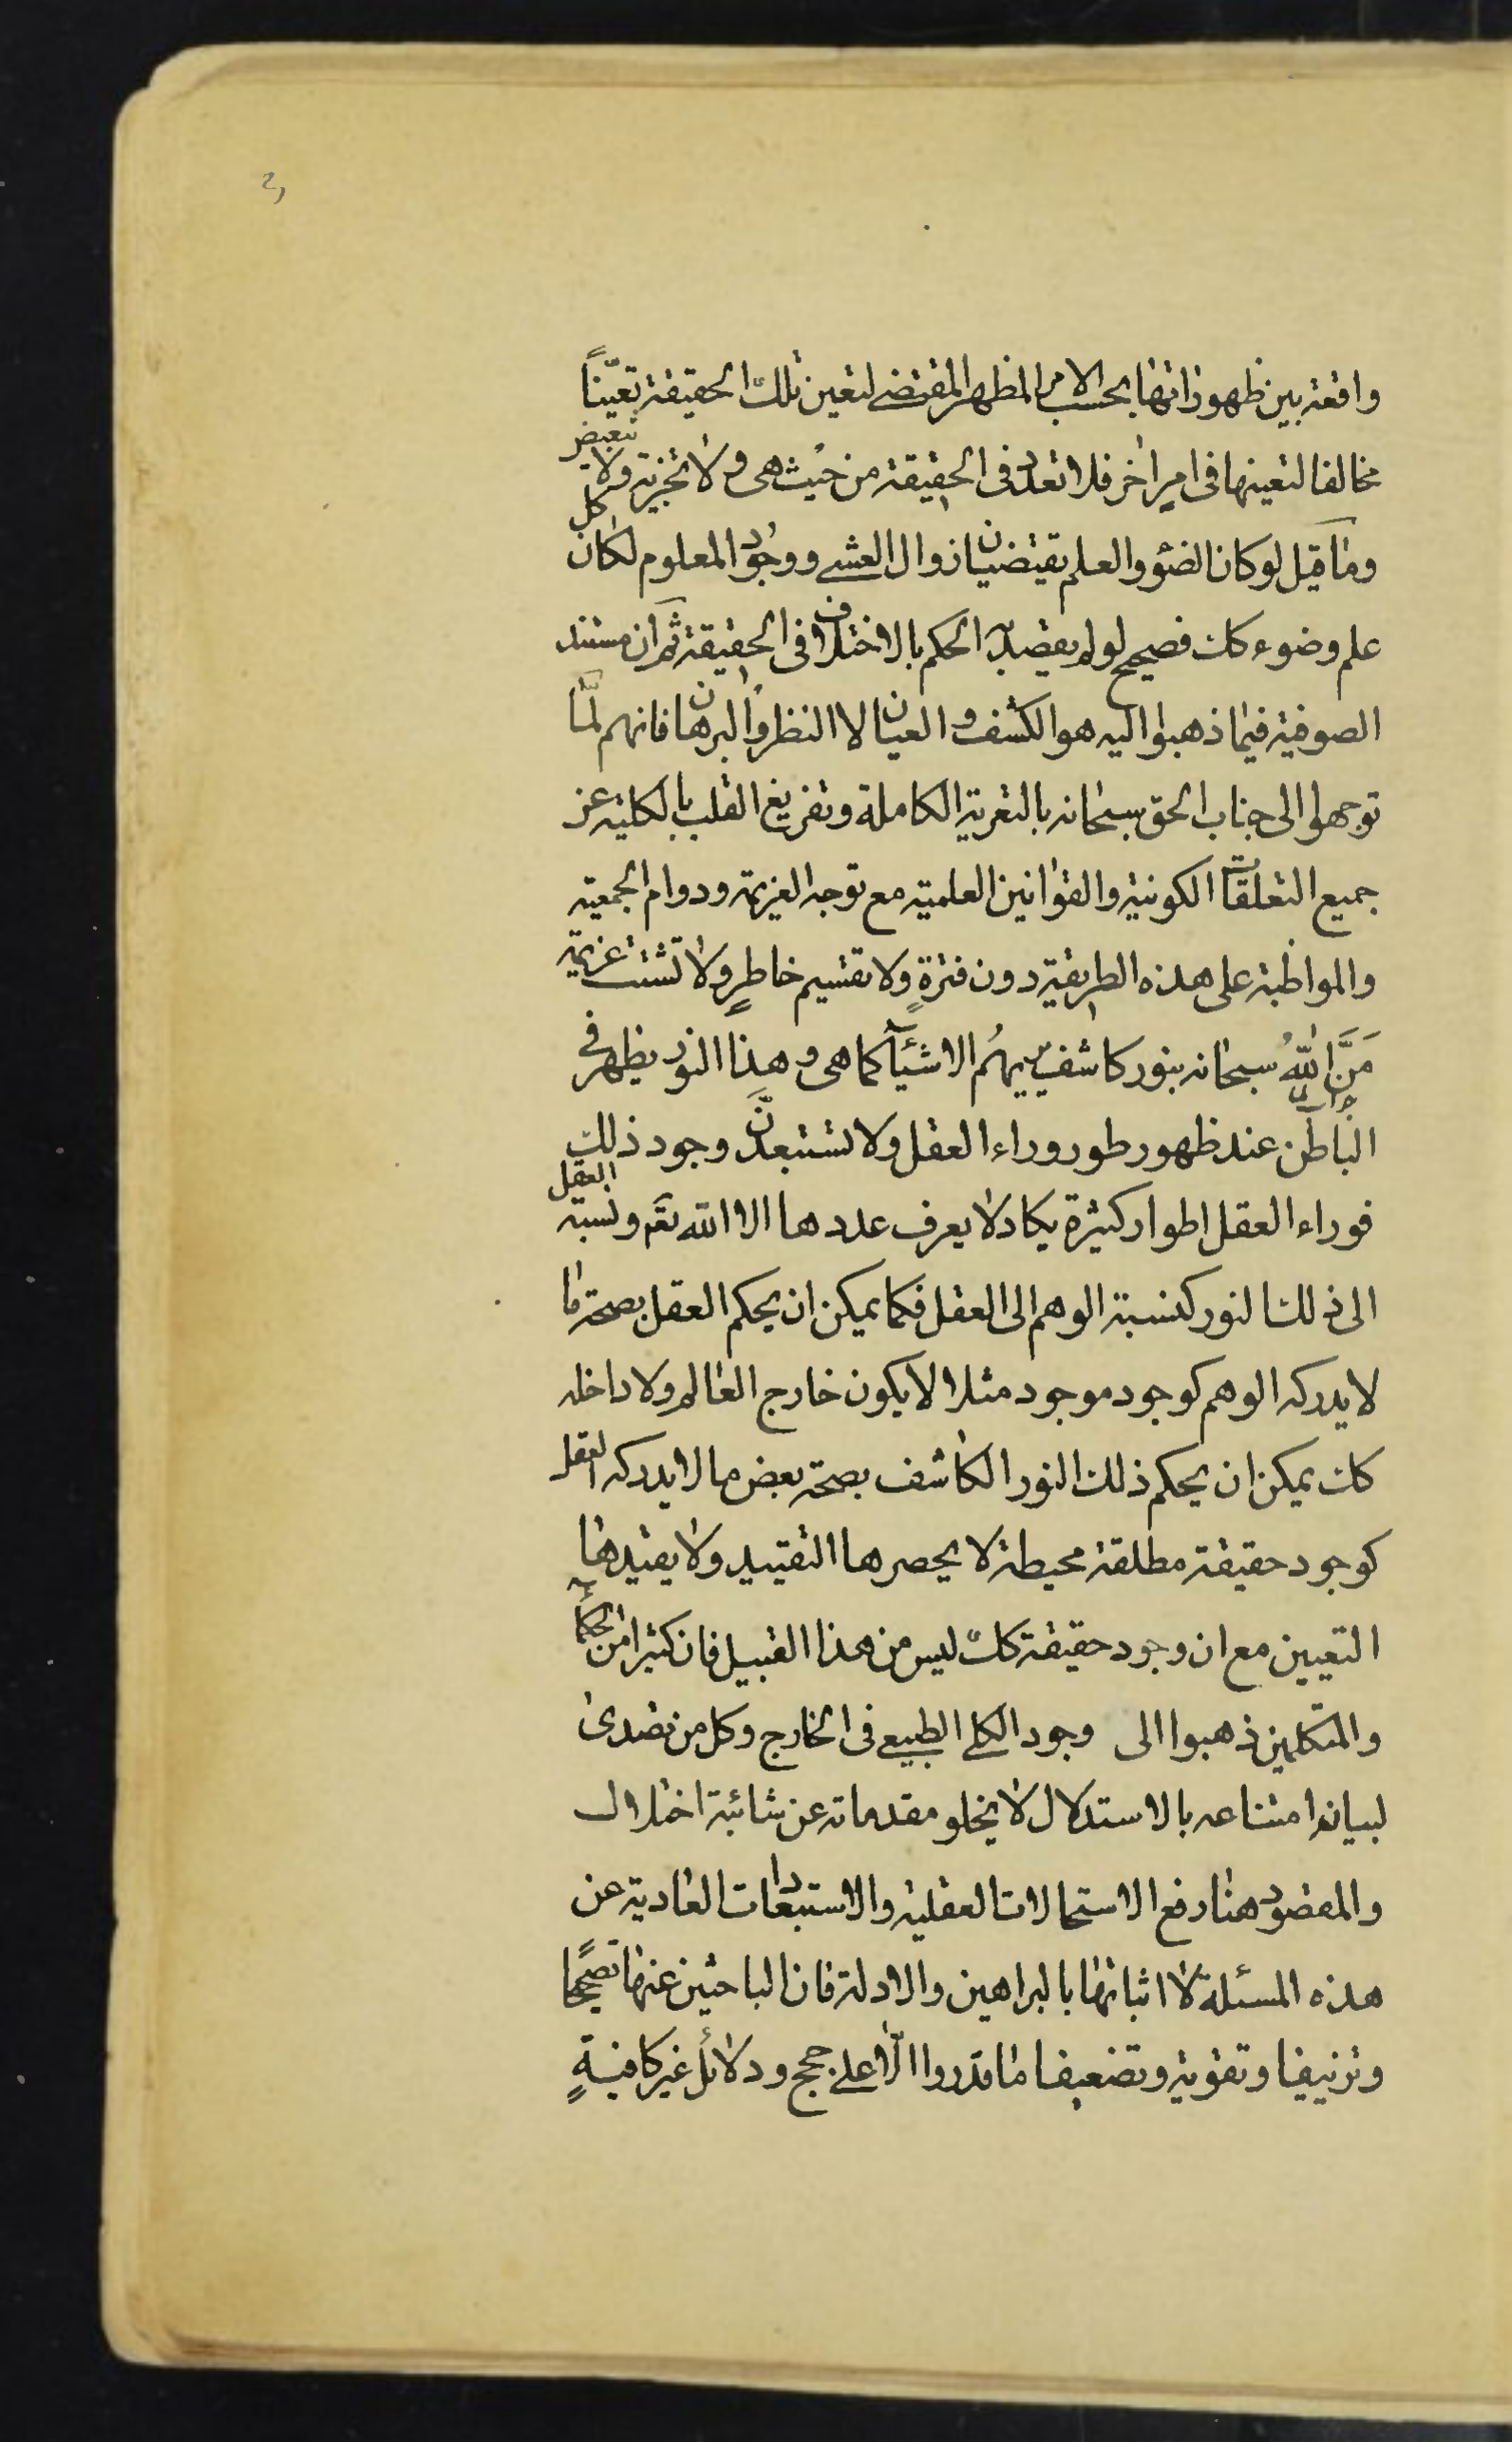 واقعة بين ظهوراتها بحسب الامر المظهر المقتضى لتعين تلك الحقيقة تعيّناً
مخالفا لتعينها فى امرٍ اخر فلا تعدد فى الحقيقة من حيث هى ولا تجزية ولا تبعيض
وما قيل لو كان الضوء والعلم يقتضيان زوال العشى ووجود المعلوم لكان كل
علم وضوء كك فصحيح لو لم يقصد به الحكم بالاختلاف فى الحقيقة ثم ان مستند
الصوفية فيما ذهبوا اليه هو الكشف والعيان لا النظر والبرهان فانهم لمّا
توجهوا الى جناب الحق سبحانه بالتعرية الكاملة وتفريغ القلب بالكلية عن
جميع التعلقات الكونية والقوانين العلمية مع توحد العزيمة ودوام الجمعية
والمواظبة على هذه الطريقة دون فترةٍ ولا تقسيم خاطرٍ ولا تشتت عزيمة
مَنَّ اللّٰهُ سبحانه بنور كاشف يريهُم الاشياء كما هى وهذا النور يظهر فى
الباطن عند ظهور طور وراء العقل ولا تستبعدنّ وجود ذلك
فوراء العقل اطوار كثيرة يكاد لا يعرف عددها الا الله تعم ونسبة العقل
الى ذلك النور كنسبة الوهم الى العقل فكما يمكن ان يحكم العقل بصحة ما
لا يدركه الوهم كوجود موجود مثلا لا يكون خارج العالم ولا داخله
كك يمكن ان يحكم ذلك النور الكاشف بصحة بعض ما لا يدركه العقل
كوجود حقيقة مطلقة محيطة لا يحصرها التقييد ولا يقيدها
التعيين مع ان وجود حقيقة كك ليس من هذا القبيل فان كثيرا من الحكماء
والمتكلمين ذهبوا الى وجود الكلى الطبيعى فى الخارج وكل من تصدى
لبيان امتناعه بالاستدلال لا يخلو مقدماته عن شائبة اختلال
والمقصود هنا رفع الاستحالات العقلية والاستبعادات العادية عن
هذه المسئلة لا اثباتها بالبراهين والادلة فان الباحثين عنها تصحيحًا
وتزييفا وتقوية وتضعيفا ما قدروا الّا على حجج ودلائل غير كافيةٍ